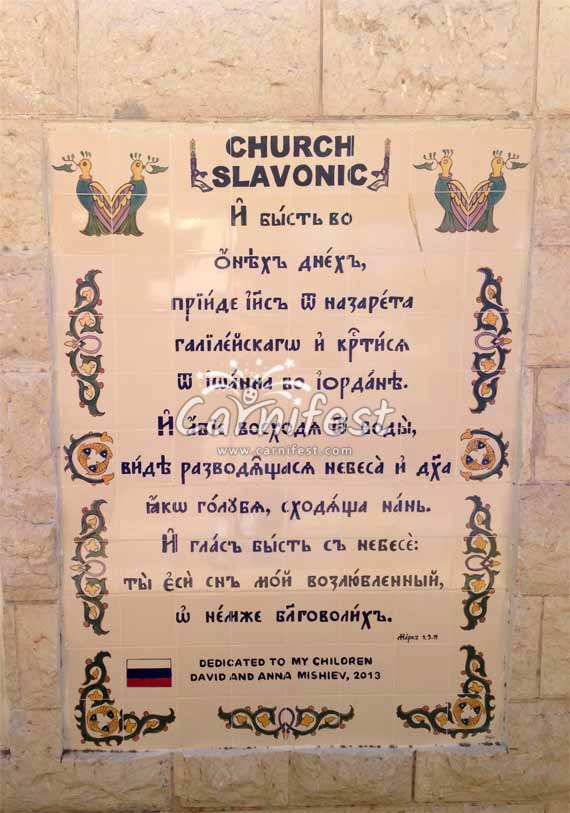 CHURCH
SLAVONIC
И҆ бы́сть во
ѻ҆́нѣхъ дне́хъ,
прїи́де і҆и҃съ ѿ назаре́та
галїле́йскагѡ и҆ крⷭ҇ти́сѧ
ѿ і҆ѡа́нна во і҆орда́нѣ.
И҆ а҆́бїе восходѧ̀ ѿ воды̀,
ви́дѣ разводѧ̑щасѧ небеса̀ и҆ дх҃а
ꙗ҆́кѡ го́лубѧ, сходѧ́ща на́нь.
И҆ гла́съ бы́сть съ небесѐ:
ты̀ є҆сѝ сн҃ъ мо́й возлю́бленный,
ѡ҆ не́мже бл҃говоли́хъ.
Carnifest
www.carnifest.com
DEDICATED TO MY CHILDREN
DAVID AND ANNA MISHIEV, 2013